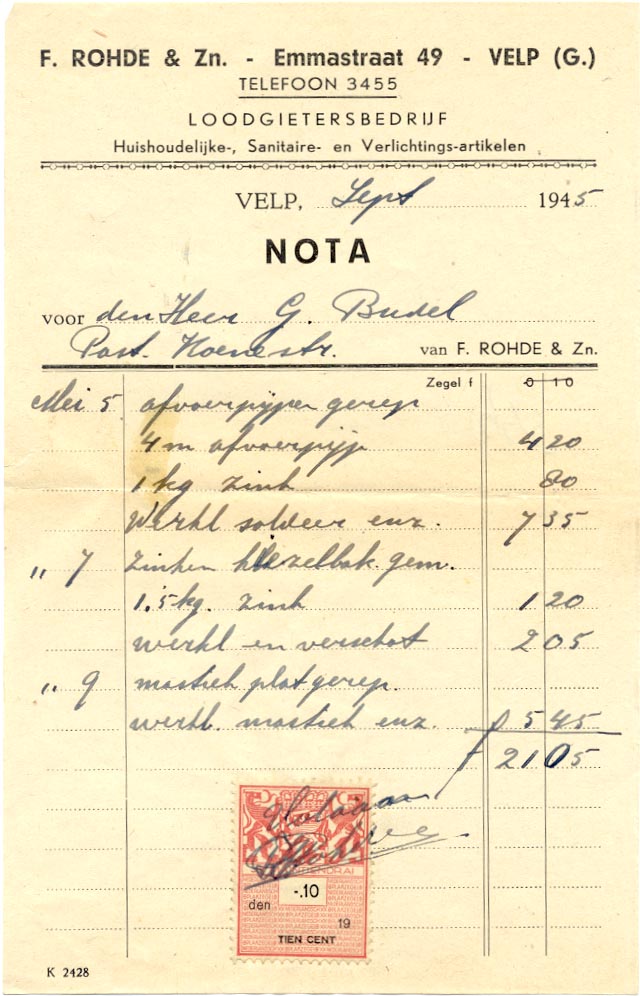 F. ROHDE & Zn. - Emmastraat 49 - VELP (G.)
TELEFOON 3455
LOODGIETERSBEDRIJF
Huishoudelijke-, Sanitaire- en Verlichtings-artikelen
VELP, Sept 1945
NOTA
voor den Heer G. Budel
Past. Hoenestr. van F. ROHDE & Zn.
Zegel f 0 10
Mei 5 afvoerpijpen gerep
4 m afvoerpijp 4 20
1 kg zink 80
Werkl soldeer enz. 7 35
„ 7 zinken kiezelbak gem.
1.5 kg. zink 1 20
werkl en verschot 2 05
„ 9 mastiek plat gerep.
werkl. mastiek enz. 5 45
f 21 05
Voldaan
-.10
den
19
TIEN CENT
K 2428